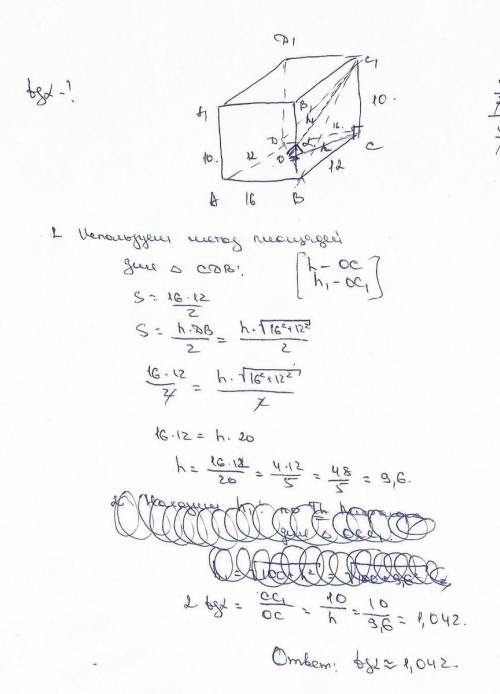 tgα-?
D₁
C₁
A₁
B₁
10.
10.
D
α
16
12
O
h
C
12
A
16
B
1 Используем метод площадей
для △ CDB:
[h – OC
h₁ – OC₁]
S = 16·12/2
S = h·DB/2 = h·√(16²+12²)/2
16·12/2 = h·√(16²+12²)/2
16·12 = h·20
h = 16·12/20 = 4·12/5 = 48/5 = 9,6.
2 tgα = CC₁/OC = 10/h = 10/9,6 = 1,042.
Ответ: tgα ≈ 1,042.